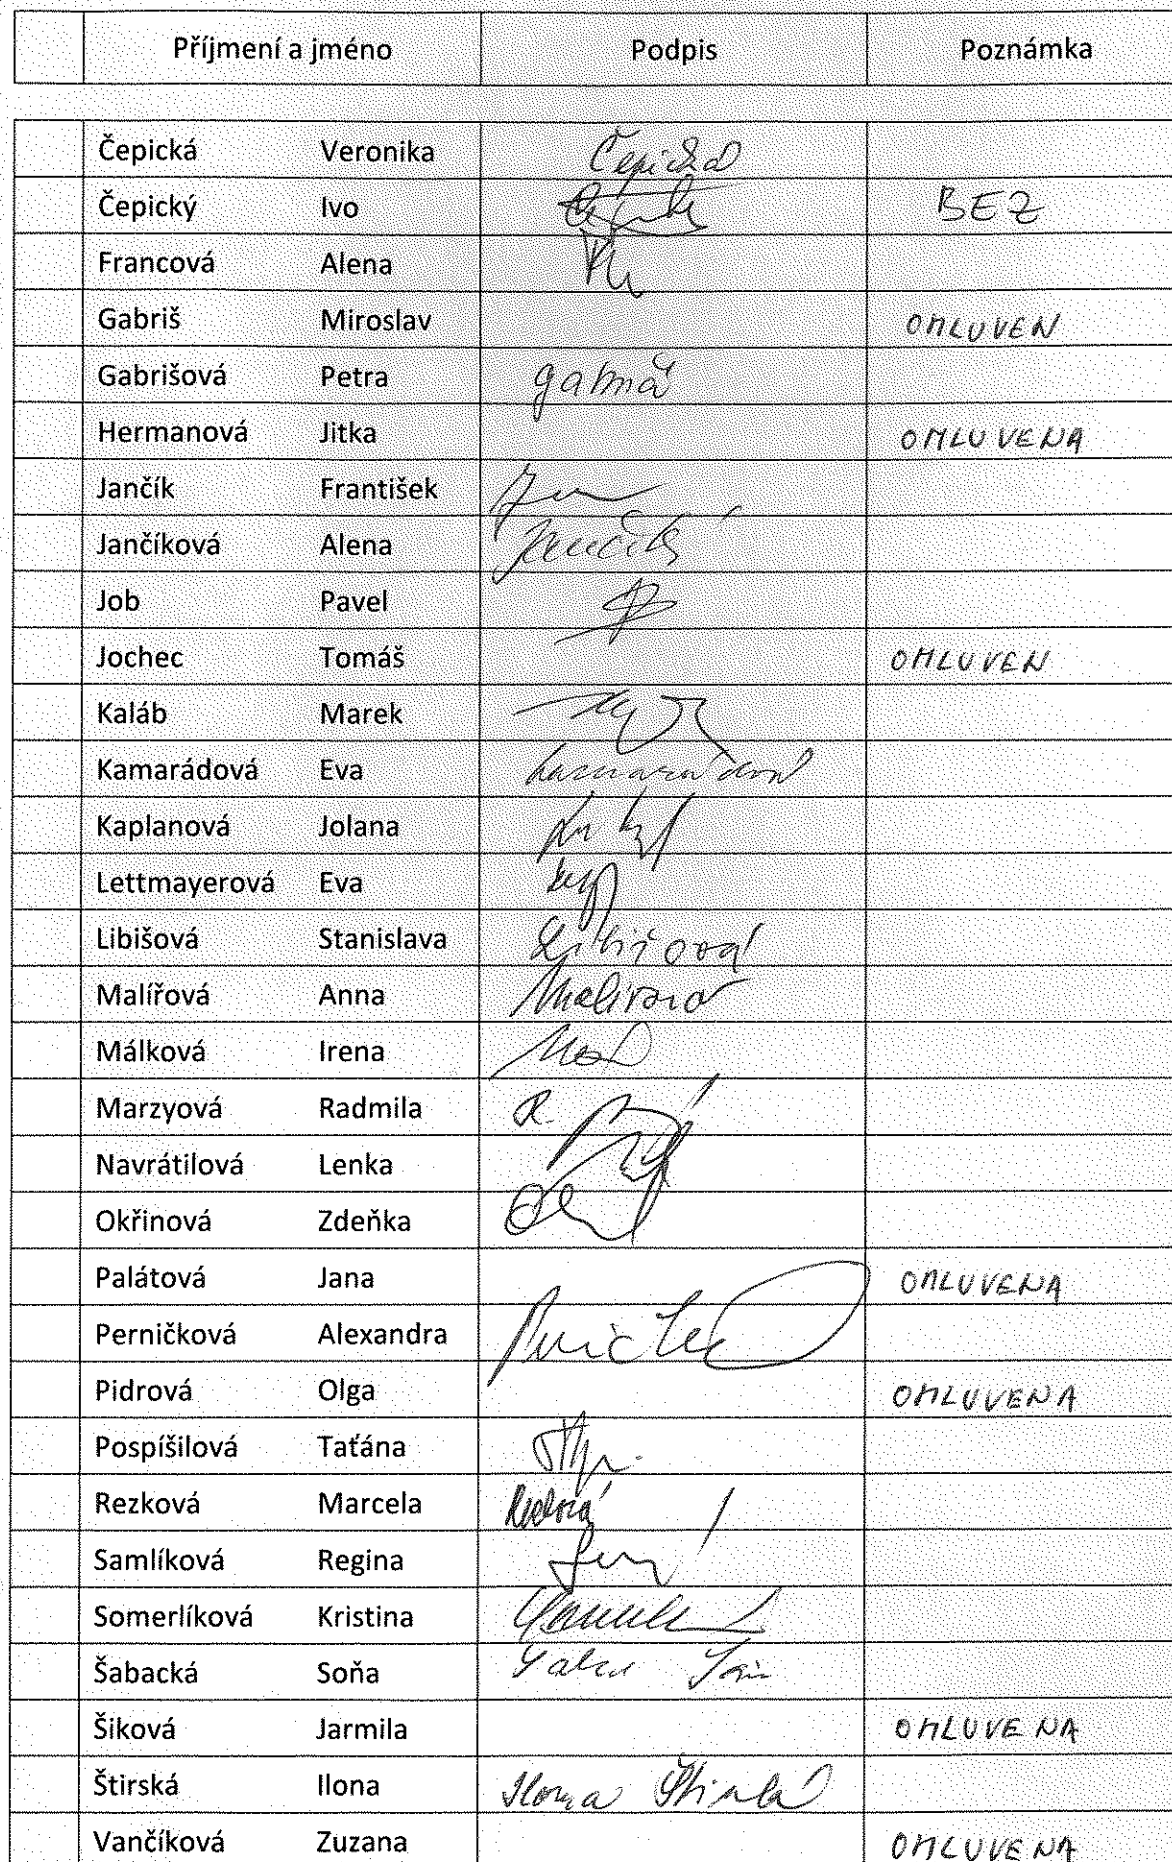 Příjmení a jméno Podpis Poznámka
Čepická Veronika Čepická
Čepický Ivo BEZ
Francová Alena
Gabriš Miroslav OMLUVEN
Gabrišová Petra
Hermanová Jitka OMLUVENA
Jančík František
Jančíková Alena
Job Pavel
Jochec Tomáš OMLUVEN
Kaláb Marek
Kamarádová Eva Kamarádová
Kaplanová Jolana
Lettmayerová Eva
Libišová Stanislava Libišová
Malířová Anna Malířová
Málková Irena
Marzyová Radmila R.
Navrátilová Lenka
Okřinová Zdeňka
Palátová Jana OMLUVENA
Perničková Alexandra
Pidrová Olga OMLUVENA
Pospíšilová Taťána
Rezková Marcela
Samlíková Regina
Somerlíková Kristina
Šabacká Soňa
Šiková Jarmila OMLUVENA
Štirská Ilona Ilona Štirská
Vančíková Zuzana OMLUVENA